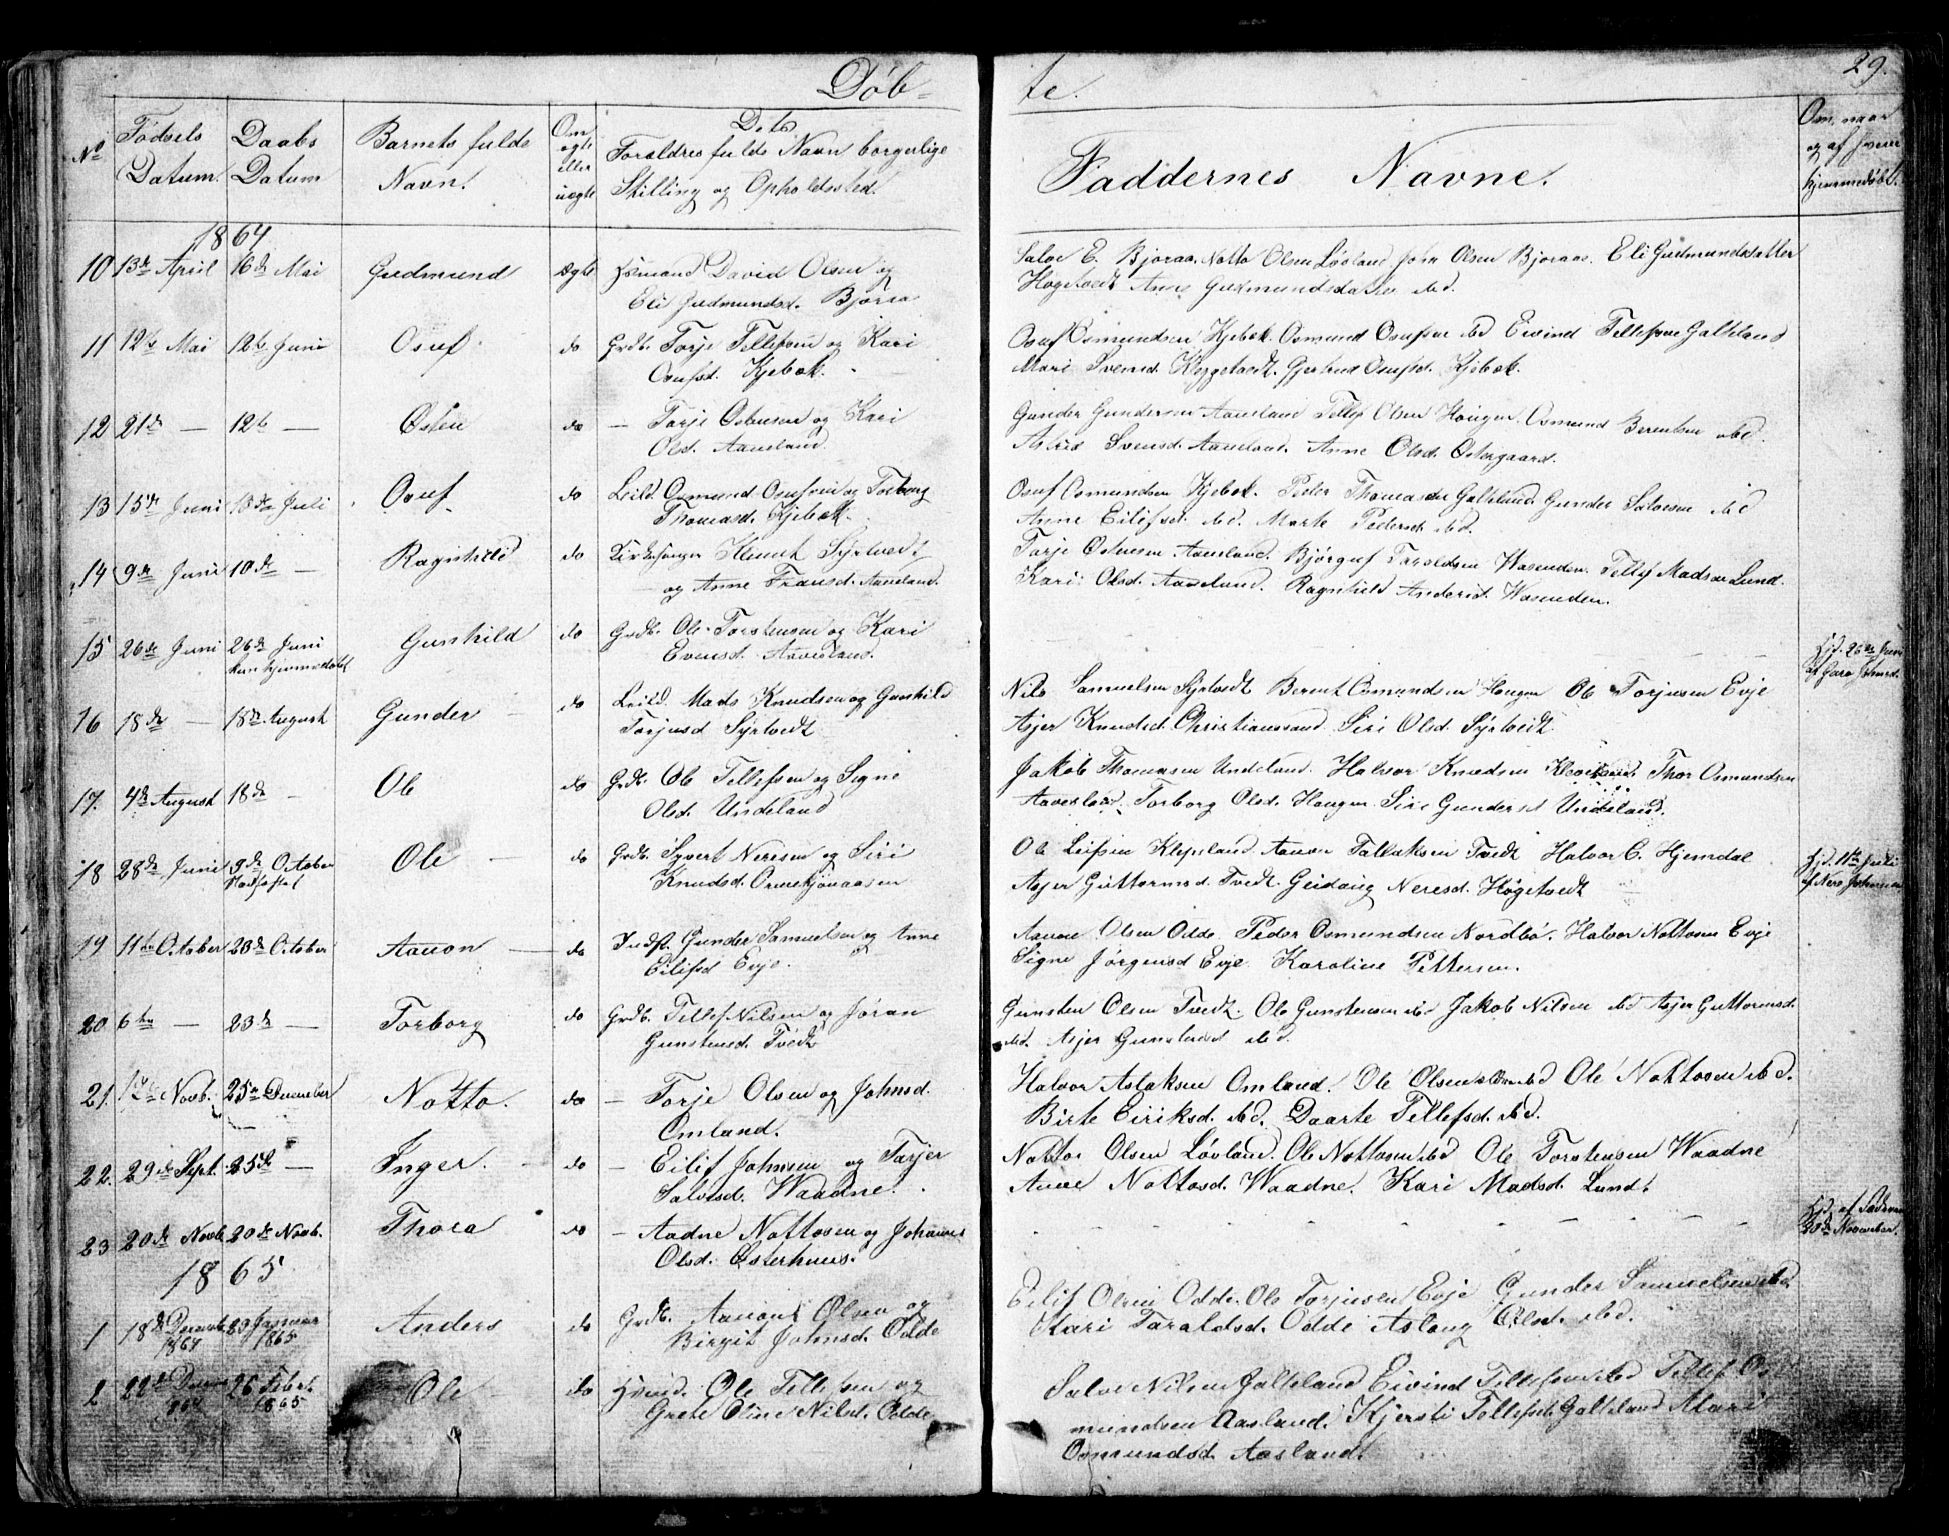 Døb-
te.
29.
No
Fødsels Datum.
Daabs Datum
Barnets fulde Navn.
Om ægte eller uægte
Dets Forældres fulde Navn borgerlige Stilling og Opholdssted.
Faddernes Navne.
Om, naar og af hvem hjemmedøbt.
1864
10 13de April 16de Mai Gudmund Ægte Huusmand David Olsen og
Eli Gudmundsd. Bjoraa
Salve E. Bjoraa. Notto Olsen Løvland John Olsen Bjoraas. Eli Gudmundsdatter
Høgetvedt Anne Gudmundsdatter ibd.
11 12te Mai 12te Juni Osuf do Grdb. Torje Tellefsen og Kari
Osufsd. Kjebek.
Osuf Osmundsen Kjebek. Osmund Osufsen ibd Eivind Tellefsen Galteland
Mari Svensd. Kleggetvedt. Gjertrud Osufsd. Kjebek.
12 21de — 12te — Østen do — Torje Ostensen og Kari
Olsd. Aaneland
Gunder Gundersen Aaneland Tellef Olsen Hougen. Osmund Berentsen ibd.
Astrid Svensd. Aaneland. Anne Olsd. Ostergaard.
13 15de Juni 13de Juli Osuf do Leild. Osmund Osufsen og Torborg
Thomasd. Kjebek.
Osuf Osmundsen Kjebek. Peder Thomasen Galteland Gunder Salvesen ibd
Anne Eilefsd. ibd. Marte Pedersd. ibd.
14 9de Juni 10de — Ragnhild do Kirkesanger Knut Syrtvedt
og Anne Fransd. Aaneland.
Torje Ostensen Aaneland. Bjørguf Taroldsen Wasenden. Tellef Madsen Lund.
Kari Olsd. Aaneland. Ragnhild Andersd. Wasenden.
15 26de Juni 26de Juni Gunhild do Grdb. Ole Torstensen og Kari
kun hjemmedøbt
Evensd. Aavesland.
Hjd. 26de Juni
16 18de — 18de August Gunder do Leild. Mads Knudsen og Gunhild
Torjusd Syrtvedt
Nils Samuelsen Syrtvedt Berent Osmundsen Hougen Ole Torjusen Evje
Asjer Knudsd. Christianssand. Siri Olsd. Syrtvedt.
17. 4de August 18de — Ole do Grdb. Ole Tellefsen og Signe
Olsd. Undeland
Jakob Thomasen Undeland. Halvor Knudsen Thor Osmundsen
Aavesland. Torborg Olsd. Hougen. Siri Gundersd Undeland.
18 28de Juni 9de October Ole — do Grdb. Syvert Neresen og Siri
Stadfæstet
Knudsd.
Ole Leifsen Klepsland Aanon Tallaksen Tvedt Halvor C. Hjemdal
Asjer Guttormsd. Tvedt. Geidaug Neresd. Høgetvedt
Hjd. 11te Juli
af Neres Johnsen
19 11te October 23de October Aanon — do Indst. Gunder Samuelsen og Anne
Eilifsd Evje.
Aanon Olsen Odde. Peder Osmundsen Nordbø. Halvor Nottosen Evje
Signe Jørgensd Evje. Karoline Pettersen.
20 6te — 23de — Torborg do Grdb. Tellef Nilsen og Jøran
Gunstensd. Tvedt
Gunsten Olsen Tvedt. Ole Gunstensen ibd Jakob Nilsen ibd Asjer Guttormsd.
ibd. Asjer Gunstensd ibd.
21. Novb. 25de December Notto. do — Torje Olsen og Johnsd.
Omland.
Halvor Aslaksen Omland. Ole Olsen ibd Ole Nottosen ibd.
Birte Eiriksd. ibd. Daarte Tellefsd. ibd.
22. 29de Sept. 25de — Inger. — do — Eilif Johnsen og Tarjer
Salvesd. Waadne.
Nottor Olsen Løvland. Ole Nottosen ibd Ole Torstensen Waadne
Anne Nottosd. Waadne. Kari Madsd. Lund.
23 20de Novb 20de Novb. Thora do — Aadne Nottosen og Johanne
Olsd. Østerhuus.
Hjd. af
20de November.
1865
1 18de Decemb. 29 Januar Anders do Grdb. Aanon Olsen og
1864 1865
Birgit Johnsd. Odde
Eilif Olsen Odde. Ole Torjusen Evje Gunder Samuelsen ibd
Kari Taraldsd. Odde Aslaug Olsd. ibd.
2 22de Decem 26 Febr. Ole do Ole Tellefsen og
1864 1865
Grete Oline Nilsd. Odde
Salve Nilsen Galteland Eivind Tellefsen ibd Tellef Os-
mundsen Aasland. Kjersti Tellefsd. Galteland Mari
Osmundsd. Aasland.